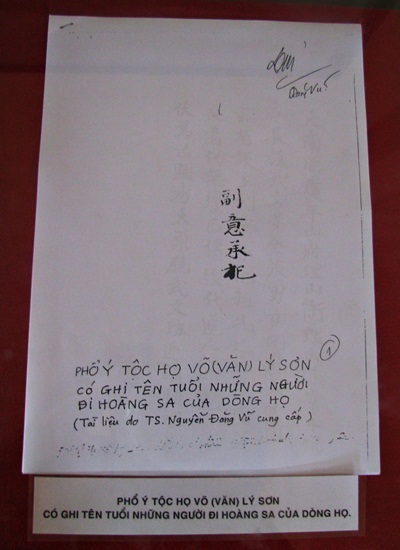 副意承祀
①
PHỔ Ý TỘC HỌ VÕ (VĂN) LÝ SƠN
CÓ GHI TÊN TUỔI NHỮNG NGƯỜI
ĐI HOÀNG SA CỦA DÒNG HỌ
(Tài liệu do TS. Nguyễn Đăng Vũ cung cấp)
PHỔ Ý TỘC HỌ VÕ (VĂN) LÝ SƠN
CÓ GHI TÊN TUỔI NHỮNG NGƯỜI ĐI HOÀNG SA CỦA DÒNG HỌ.